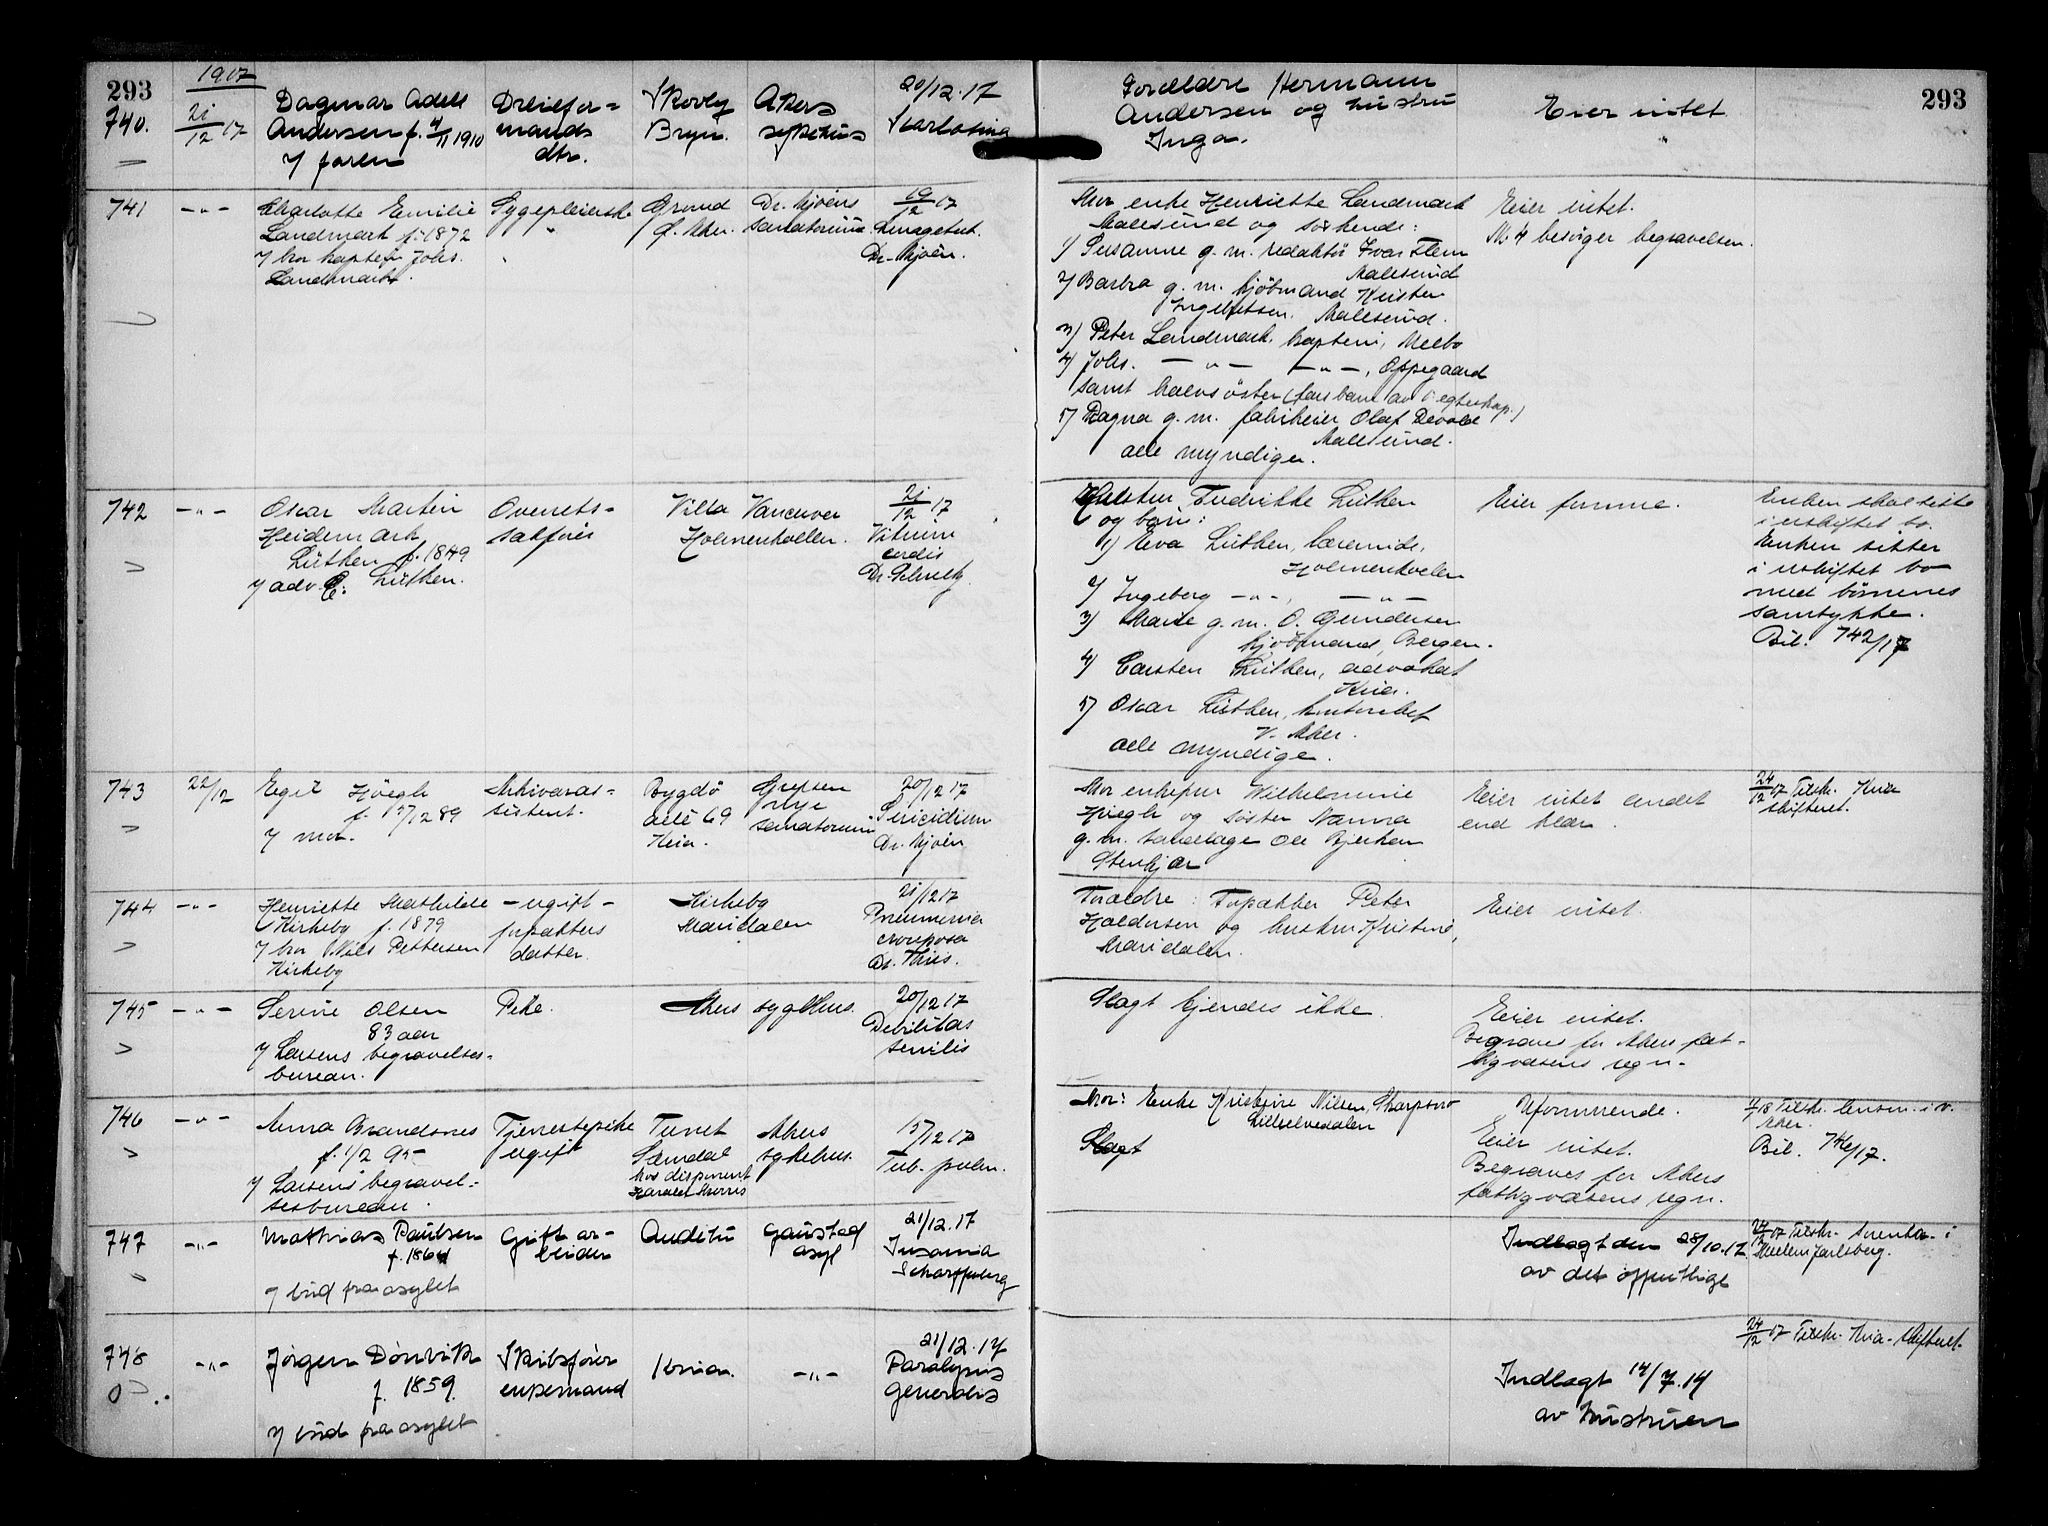 293
1917
740.
21/12 17
Dagmar Adele
Andersen f. 4/11 1910
v/ faren
mands
dtr.
Skovly
Bryn.
Akers
sykehus
20/12.17
Scarlatina
Foreldre Hermann
Andersen og hustru
Inga.
Eier intet
293
741
-"-
Charlotte Emilie
Landmark f. 1872
v/ bror kaptein Johs.
Landmark.
Sygepleierske
Grorud
Ø. Aker.
Dr. Mjøens
sanatorium.
19/12 17
Lungetub.
Dr. Mjøen.
Mor enke Henriette Landmark
Aalesund og søskende:
1) Susanne g. m. redaktør Ivar Flem
Aalesund
2) Barbra g. m. kjøbmand Kristen
Ingebretsen. Aalesund.
3) Peter Landmark. kaptein, Melbo
4) Johs. -"- -"-, Oppegaard
samt halvsøster (fars barn av egteskap.)
5) Ragna g. m. fabrikeier Olaf Devold
Aalesund.
alle myndige.
Eier intet.
No 4 besørger begravelsen.
742
-"-
Oscar Martin
Heidemark
Lüthken f. 1849
v/ adv. C. Lüthken.
Overrets-
sakfører
Villa Vancuver
Holmenkollen.
21/12 17
Vitium
cordis
Enken Fredrikke Lüthken
og barn:
1) Eva Lüthken, lærerinde,
Holmenkollen
2) Ingeborg -"-, -"-
3) Marie g. m. O. Gundersen
kjøbmand, Bergen.
4) Carsten Lüthken, advokat
Kria.
5) Oscar Lüthken, kontorchef
V. Aker.
alle myndige.
Eier formue.
Enken skal sitte
i uskiftet bo.
Enken sitter
i uskiftet bo
med børnenes
samtykke.
Bil. 742/17
743
22/12
Egil Høegh
f. 17/12 89
v/ mor.
Arkivaras-
sistent.
Bygdø
allé 69
Kria.
Grefsen
nye
sanatorium
20/12 17
Suicidium
Dr. Mjøen
Mor enkefru Wilhelmine
Høegh og søster Nanna
g. m. Ole Bjerkan
Stenkjær
Eier intet andet
end klær.
24/12 17 Tilskr. Kria
skifteret.
744
-"-
Henriette Mathilde
Kirkeby f. 1879
v/ bror Nils Pettersen
Kirkeby
- ugift -
forpakters
datter.
Kirkeby
Maridalen
21/12 17
Pneumonia
crouposa
Dr. Thiis.
Forældre: Forpakter Peter
Haldorsen og hustru Kristine,
Maridalen.
Eier intet.
745
-"-
Serine Olsen
83 aar
v/ Larsens begravelses-
bureau.
Pike.
Akers sygehus.
20/12 17
Debilitas
senilis
Slagt kjendes ikke.
Eier intet.
Begraves for Akers fat-
tigvæsens regn.
746
-"-
Anna Brandsnes
f. 1/2 95
v/ Larsens begravel-
sesbureau.
Tjenestepike
ugift
Tunet
hos disponent
Akers
sykehus.
15/12 17
Tub. pulm.
Mor: Enke Kristine Nilsen,
Slagt
Uformuende.
Eier intet.
Begraves for Akers
fattigvæsens regn.
Bil. 746/17.
747
-"-
Mathias Paulsen
f. 1864
v/ bud fra asylet
Gift ar-
beider
Gaustad
asyl
21/12.17
Insania
Scharffenberg
Indlagt den 28/10.17
av det offentlige
748
-"-
Jørgen Dønvik
f. 1859.
v/ bud fra asylet
Skibsfører
enkemand
Kria.
-"-
21/12.17
Paralysis
generalis
Indlagt 14/7.14
av hustruen
24/12 17 Tilskr. Kria. Skifteret.